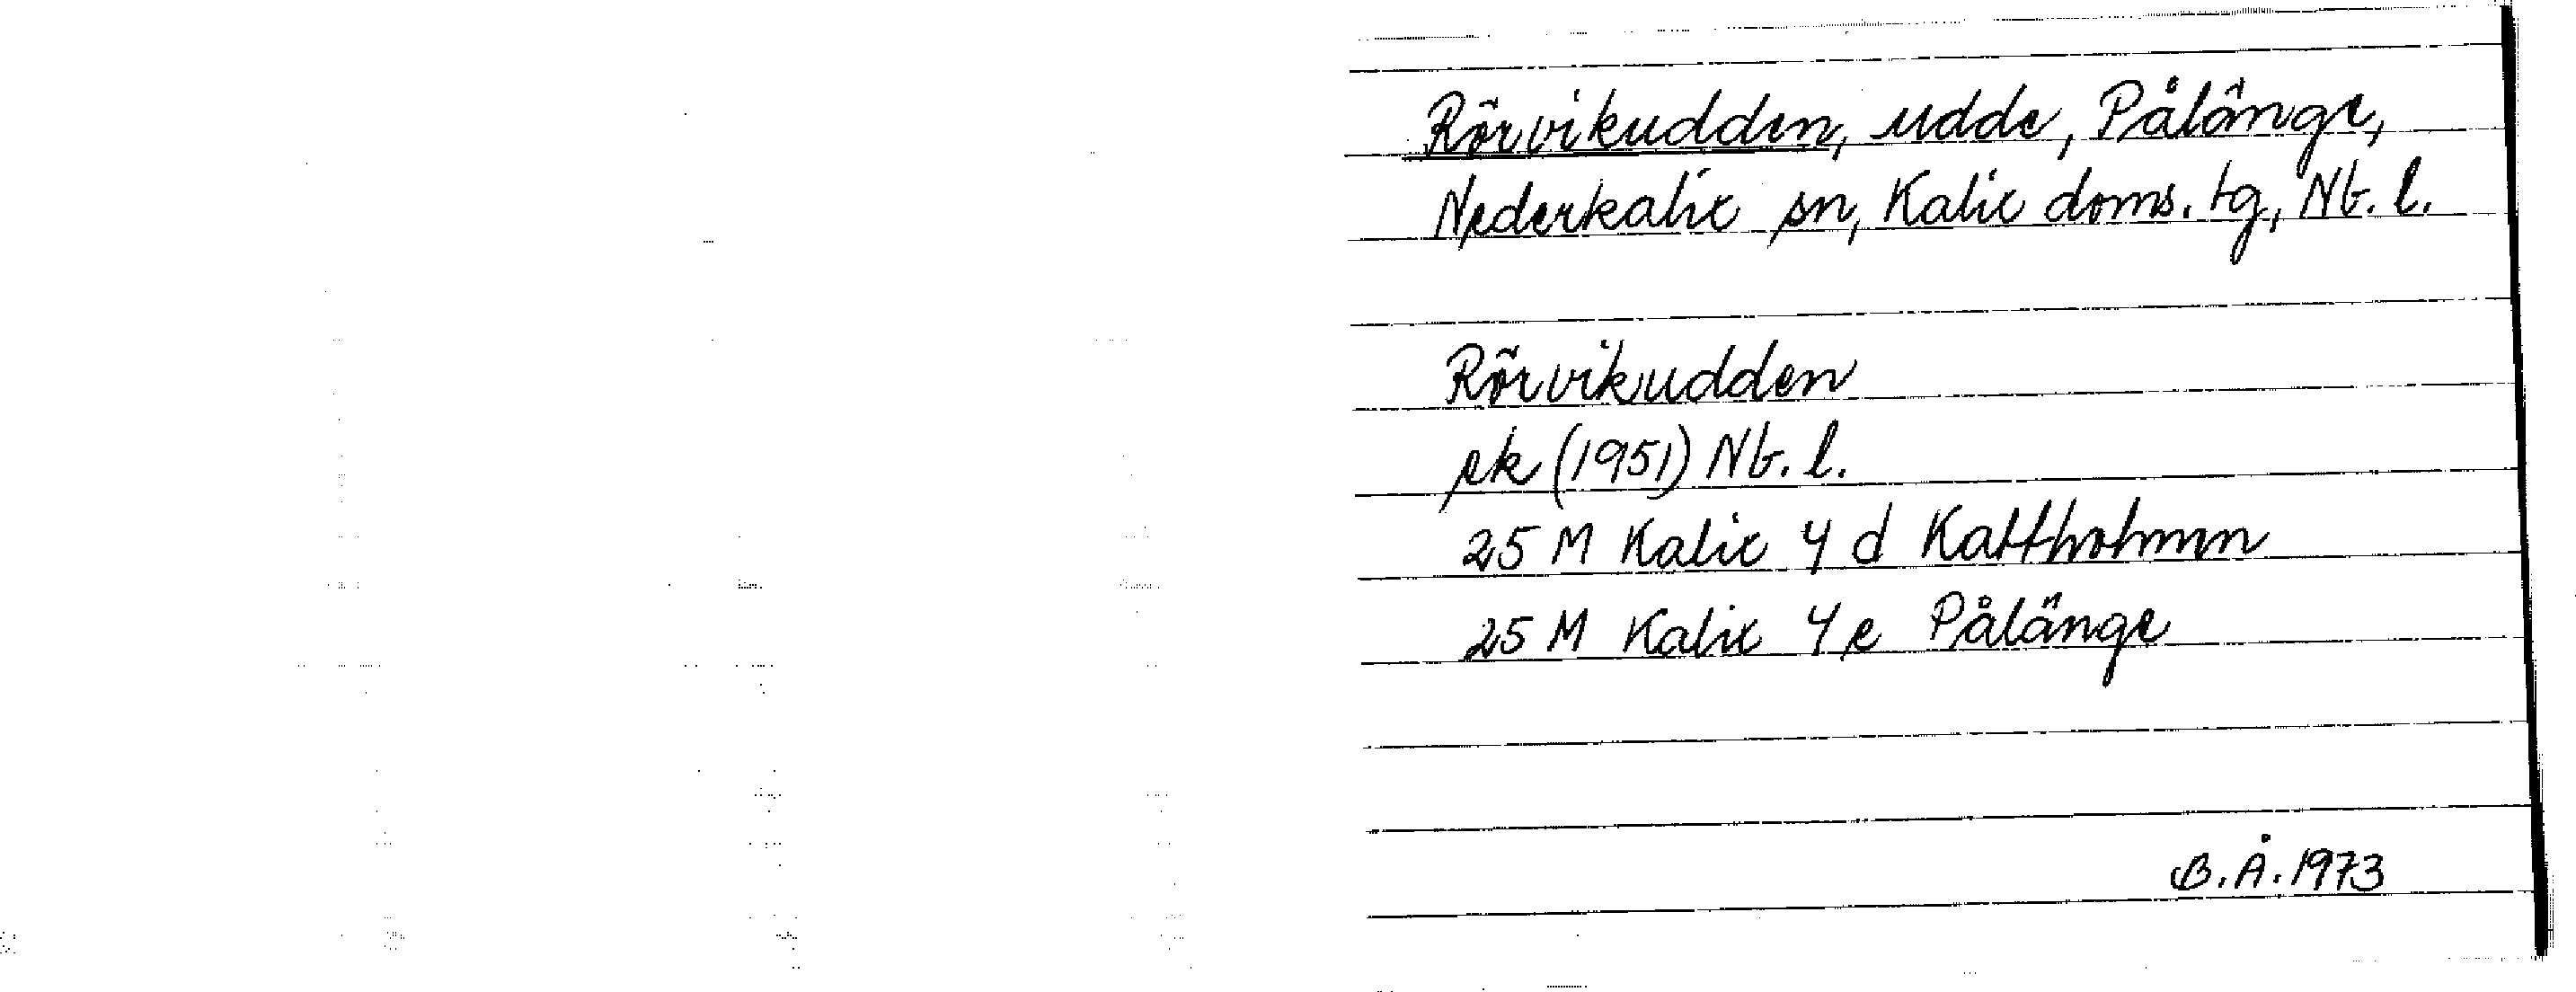 Rörvikudden, udde, Pålänge,
Nederkalix sn, Kalix doms. tg, Nb. l.
Rörvikudden
ek (1951) Nb. l.
25 M Kalix 4 d Kattholmen
25 M Kalix 4 e Pålänge
B. Å. 1973